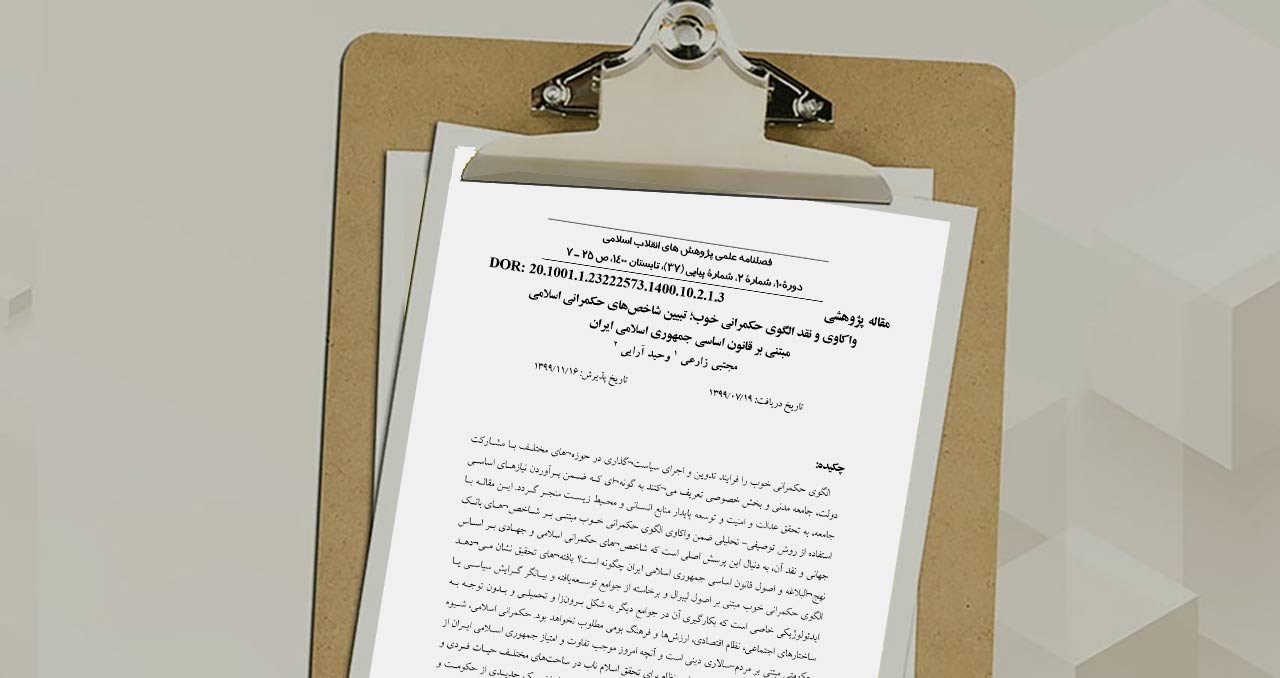 فصلنامه علمی پژوهش های انقلاب اسلامی
دورۀ۱۰، شمارۀ ۲، شمارۀ پیاپی (۳۷)، تابستان ۱۴۰۰، ص ۲۵ ـ ۷
DOR: 20.1001.1.23222573.1400.10.2.1.3
مقاله پژوهشی
واکاوی و نقد الگوی حکمرانی خوب؛ تبیین شاخص‌های حکمرانی اسلامی
مبتنی بر قانون اساسی جمهوری اسلامی ایران
مجتبی زارعی ۱ وحید آرایی ۲
تاریخ دریافت: ۱۳۹۹/۰۷/۱۹ تاریخ پذیرش: ۱۳۹۹/۱۱/۱۶
چکیده:
الگوی حکمرانی خوب را فرایند تدوین و اجرای سیاست¬گذاری در حوزه¬های مختلف با مشارکت
دولت، جامعه مدنی و بخش خصوصی تعریف می¬کنند به گونه¬ای که ضمن برآوردن نیازهای اساسی
جامعه، به تحقق عدالت و امنیت و توسعه پایدار منابع انسانی و محیط زیست منجر گردد. این مقاله با
استفاده از روش توصیفی- تحلیلی ضمن واکاوی الگوی حکمرانی خوب مبتنی بر شاخص¬های بانک
جهانی و نقد آن، به دنبال این پرسش اصلی است که شاخص¬های حکمرانی اسلامی و جهادی بر اساس
نهج¬البلاغه و اصول قانون اساسی جمهوری اسلامی ایران چگونه است؟ یافته¬های تحقیق نشان می¬دهد
الگوی حکمرانی خوب مبتنی بر اصول لیبرال و برخاسته از جوامع توسعه‌یافته و بیانگر گرایش سیاسی یا
ایدئولوژیکی خاصی است که بکارگیری آن در جوامع دیگر به شکل برون‌زا و تحمیلی و بدون توجه به
ساختارهای اجتماعی، نظام اقتصادی، ارزش‌ها و فرهنگ بومی مطلوب نخواهد بود. حکمرانی اسلامی، شیوه
حکومتی مبتنی بر مردم¬سالاری دینی است و آنچه امروز موجب تفاوت و امتیاز جمهوری اسلامی ایران از
نظام برای تحقق اسلام ناب در ساحت‌های مختلف حیات فردی و
جدیدی از حکومت و